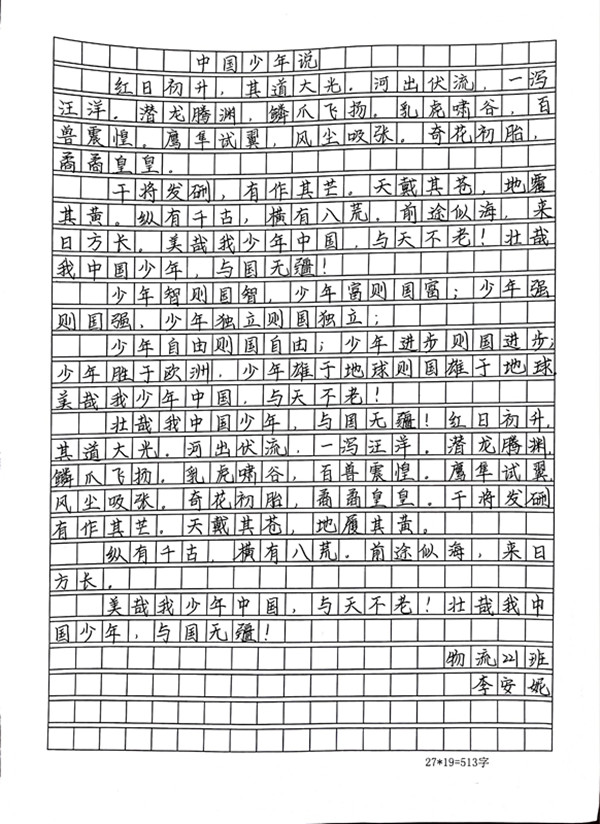 中国少年说
红日初升，其道大光。河出伏流，一泻
汪洋。潜龙腾渊，鳞爪飞扬。乳虎啸谷，百
兽震惶。鹰隼试翼，风尘吸张。奇花初胎，
矞矞皇皇。
干将发硎，有作其芒。天戴其苍，地履
其黄。纵有千古，横有八荒。前途似海，来
日方长。美哉我少年中国，与天不老！壮哉
我中国少年，与国无疆！
少年智则国智，少年富则国富；少年强
则国强，少年独立则国独立；
少年自由则国自由；少年进步则国进步；
少年胜于欧洲，少年雄于地球则国雄于地球
美哉我少年中国，与天不老！
壮哉我中国少年，与国无疆！红日初升，
其道大光。河出伏流，一泻汪洋。潜龙腾渊，
鳞爪飞扬。乳虎啸谷，百兽震惶。鹰隼试翼，
风尘吸张。奇花初胎，矞矞皇皇。干将发硎，
有作其芒。天戴其苍，地履其黄。
纵有千古，横有八荒。前途似海，来日
方长。
美哉我少年中国，与天不老！壮哉我中
国少年，与国无疆！
物流221班
李安妮
27*19=513字